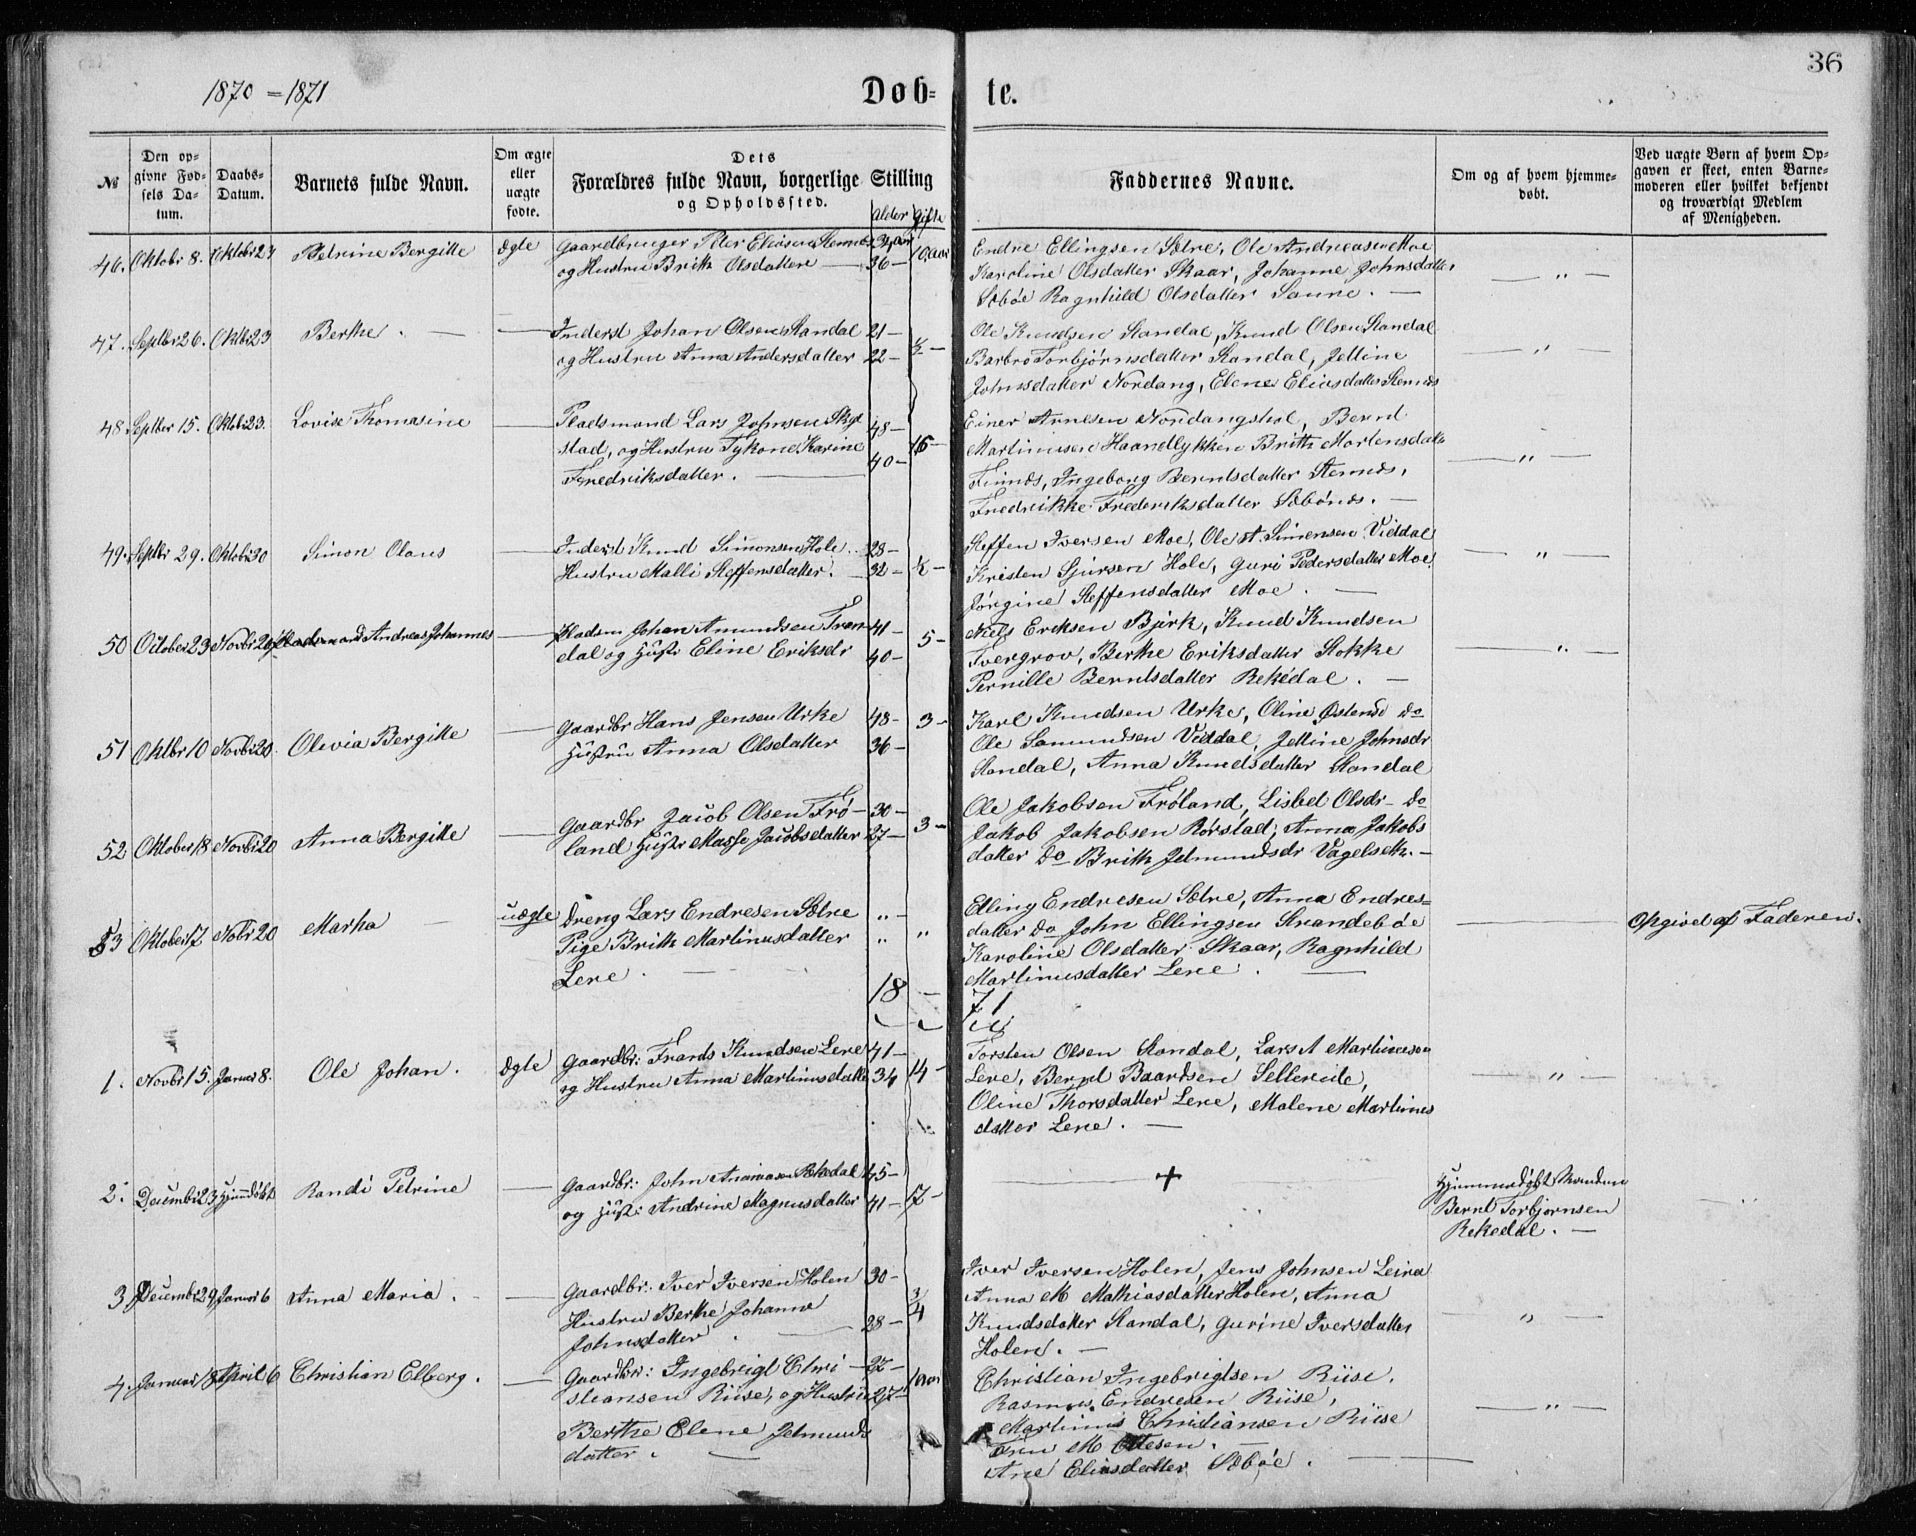 36
1870 = 1871
Døb- te.
№
Den op-
givne Fød-
sels Da-
tum.
Daabs-
Datum.
Barnets fulde Navn.
Om ægte
eller
uægte
fødte.
Dets
Forældres fulde Navn, borgerlige Stilling
og Opholdssted.
Alder Gifte
Faddernes Navne.
Om og af hvem hjemme-
døbt.
Ved uægte Børn af hvem Op-
gaven er skeet, enten Barne-
moderen eller hvilket bekjendt
og troværdigt Medlem
af Menigheden.
46. Oktobr 8. Oktobr 23 Petrine Bergitte ægte Gaardbruger Peter Eliasen Stennes 32 aar
og Hustru Brith Olsdatter — 36 — 10 aar
Endre Ellingsen Sætre, Ole Andreasen Moe
Karoline Olsdatter Skaar, Johanne Johnsdatter
Sæbøe Ragnhild Olsdatter Saure. —
— " —
47. Septbr 26. Oktbr 23 Berthe. — — Inderst Johan Olsen Standal 21 —
og Hustru Anna Andersdatter 22 — ½ —
Ole Knudsen Standal, Knud Olsen Standal
Barbro Torbjørnsdatter Standal, Jettine
Johnsdatter Nordang, Elene Eliasdatter Stennes
— " —
48 Septber 15. Oktbr 23. Lovise Thomasine — Pladsmand Lars Johnsen Skyl 48 —
stad, og Hustru Tykone Karine 40 — 16 —
Fredriksdatter. —
Einer Arnesen Nordangshol, Bernt
Martinusen Haandlykken Brith Mortensdatter
Finnes, Ingeborg Berntsdatter Stennes,
Fredrikke Frederiksdatter Sæbønes. —
— " —
49. Septbr 29. Oktobr 30 Simon Olaus — Inderst Knud Simonsen Hole. 28 —
Hustru Malli Steffensdatter. — 32 — ½ —
Steffen Iversen Moe, Ole A. Simensen Viddal
Kristen Sjursen Hole, Guri Pedersdatter Moe,
Jørgine Steffensdatter Moe. —
— " —
50 October 23 Novbr 20 Andreas Johannes — Pladsm Johan Amundsen Tran 41 —
dal og Hustr Eline Eriksdr 40 — 5 —
Niels Eriksen Bjørk, Knud Knudsen
Tvergrov, Berthe Eriksdatter Stokke
Pernille Berntsdatter Rekedal. —
— " —
51 Oktbr 10 Novbr 20. Olevia Bergitte — Gaardbr Hans Jensen Urke 48 — 3 —
Hustru Anna Olsdatter 36 —
Karl Knudsen Urke, Oline do
Ole Samundsen Viddal, Jettine Johnsdr
Standal, Anna Knudsdatter Standal
52 Oktober 18 Novbr 20 Anna Bergitte — Gaardbr Jacob Olsen Frø- 30 —
land Hustr Masse Jacobsdatter 27 — 3 —
Ole Jakobsen Frøland, Lisbet Olsdr do
Jakob Jakobsen Rørstad, Anna Jakobs
datter do Brith Jetmundsdr Vagelseth. —
53 Oktober 7 Nobr 20 Martha — uægte Dreng Lars Endresen Sætre " —
Pige Brith Martinusdatter " "
Lere. —
Elling Endresen Sætre, Anna Endres-
datter do John Ellingsen Strandebøe
Karoline Olsdatter Skaar, Ragnhild
Martinusdatter Lere. —
Opgivet af Faderen.
18 — 71
1. Novbr 15. Januar 8. Ole Johan. ægte Gaardbr: Frands Knudsen Lere 41 —
og Hustru Anna Martinusdatter 34 14 —
Torsten Olsen Standal, Lars A Martinusen
Lere, Bernt Baardsen Sellereite,
Oline Thorsdatter Lere, Malene Martinus
datter Lere. —
— " —
2. Decembr 23 Hjemdøbt Randi Petrine — Gaardbr: John Ananiasen Rekedal 45 —
og Hust: Andrine Magnusdatter 41 — 17 —
+
Hjemmedøbt
Bernt Torbjørnsen
Rekedal. —
"
3 Decembr 29 Januar 6 Anna Maria. — Gaardbr: Iver Iversen Holen 30 —
Hustru Berthe Johanne 28 — ¾
Johnsdatter. —
Iver Iversen Holen, Jens Johnsen Leira
Anna M Mathiasdatter Holen, Anna
Knudsdatter Standal, Gurine Iversdatter
Holen. —
"
4. Januar 18 April 6 Christian Elberg. — Gaardbr: Ingebrigt Chri- 27 —
stiansen Riise, og Hustru 27 —
Berthe Elene Jetmunds
datter. —
Christian Ingebrigtsen Riise,
Rasmus Endresen Riise,
Martinus Christiansen Riise
M Ottesen. —
Ane Eliasdatter Sæbøe. —
— " —